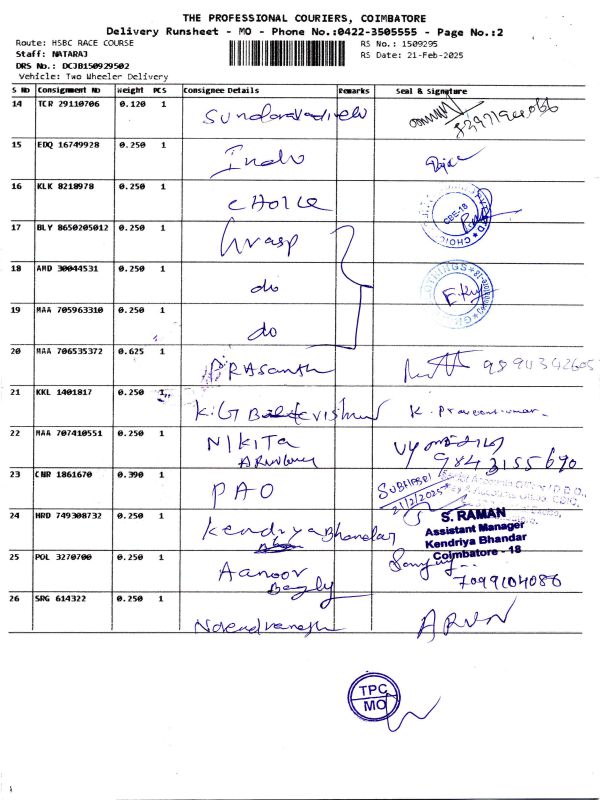 THE PROFESSIONAL COURIERS, COIMBATORE
Delivery Runsheet - MO - Phone No.:0422-3505555 - Page No.:2
Route: HSBC RACE COURSE RS No.: 1509295
Staff: NATARAJ RS Date: 21-Feb-2025
DRS No.: DCJB150929502
Vehicle: Two Wheeler Delivery
S No Consignment No Weight PCS Consignee Details Remarks Seal & Signature
14 TCR 29110706 0.120 1 Sundaravadivelu
15 EDQ 16749928 0.250 1
16 KLK 8218978 0.250 1 CHOICE
CBE-18
CHOICE
17 BLY 8650205012 0.250 1 Grasp
18 AMD 30044531 0.250 1 do
19 MAA 705963310 0.250 1 do
20 MAA 706535372 0.625 1 PRASanth
21 KKL 1401817 0.250 1 K. Praveenkumar
22 MAA 707410551 0.250 1 NIKITA
9843155690
23 CNR 1861670 0.390 1 PAO
21/2/2025
24 HRD 749308732 0.250 1 Kendriya Bhandar
S. RAMAN
Assistant Manager
Kendriya Bhandar
Coimbatore - 18
25 POL 3270700 0.250 1 Aanoor
7099104086
26 SRG 614322 0.250 1 ARUN
TPC
MO